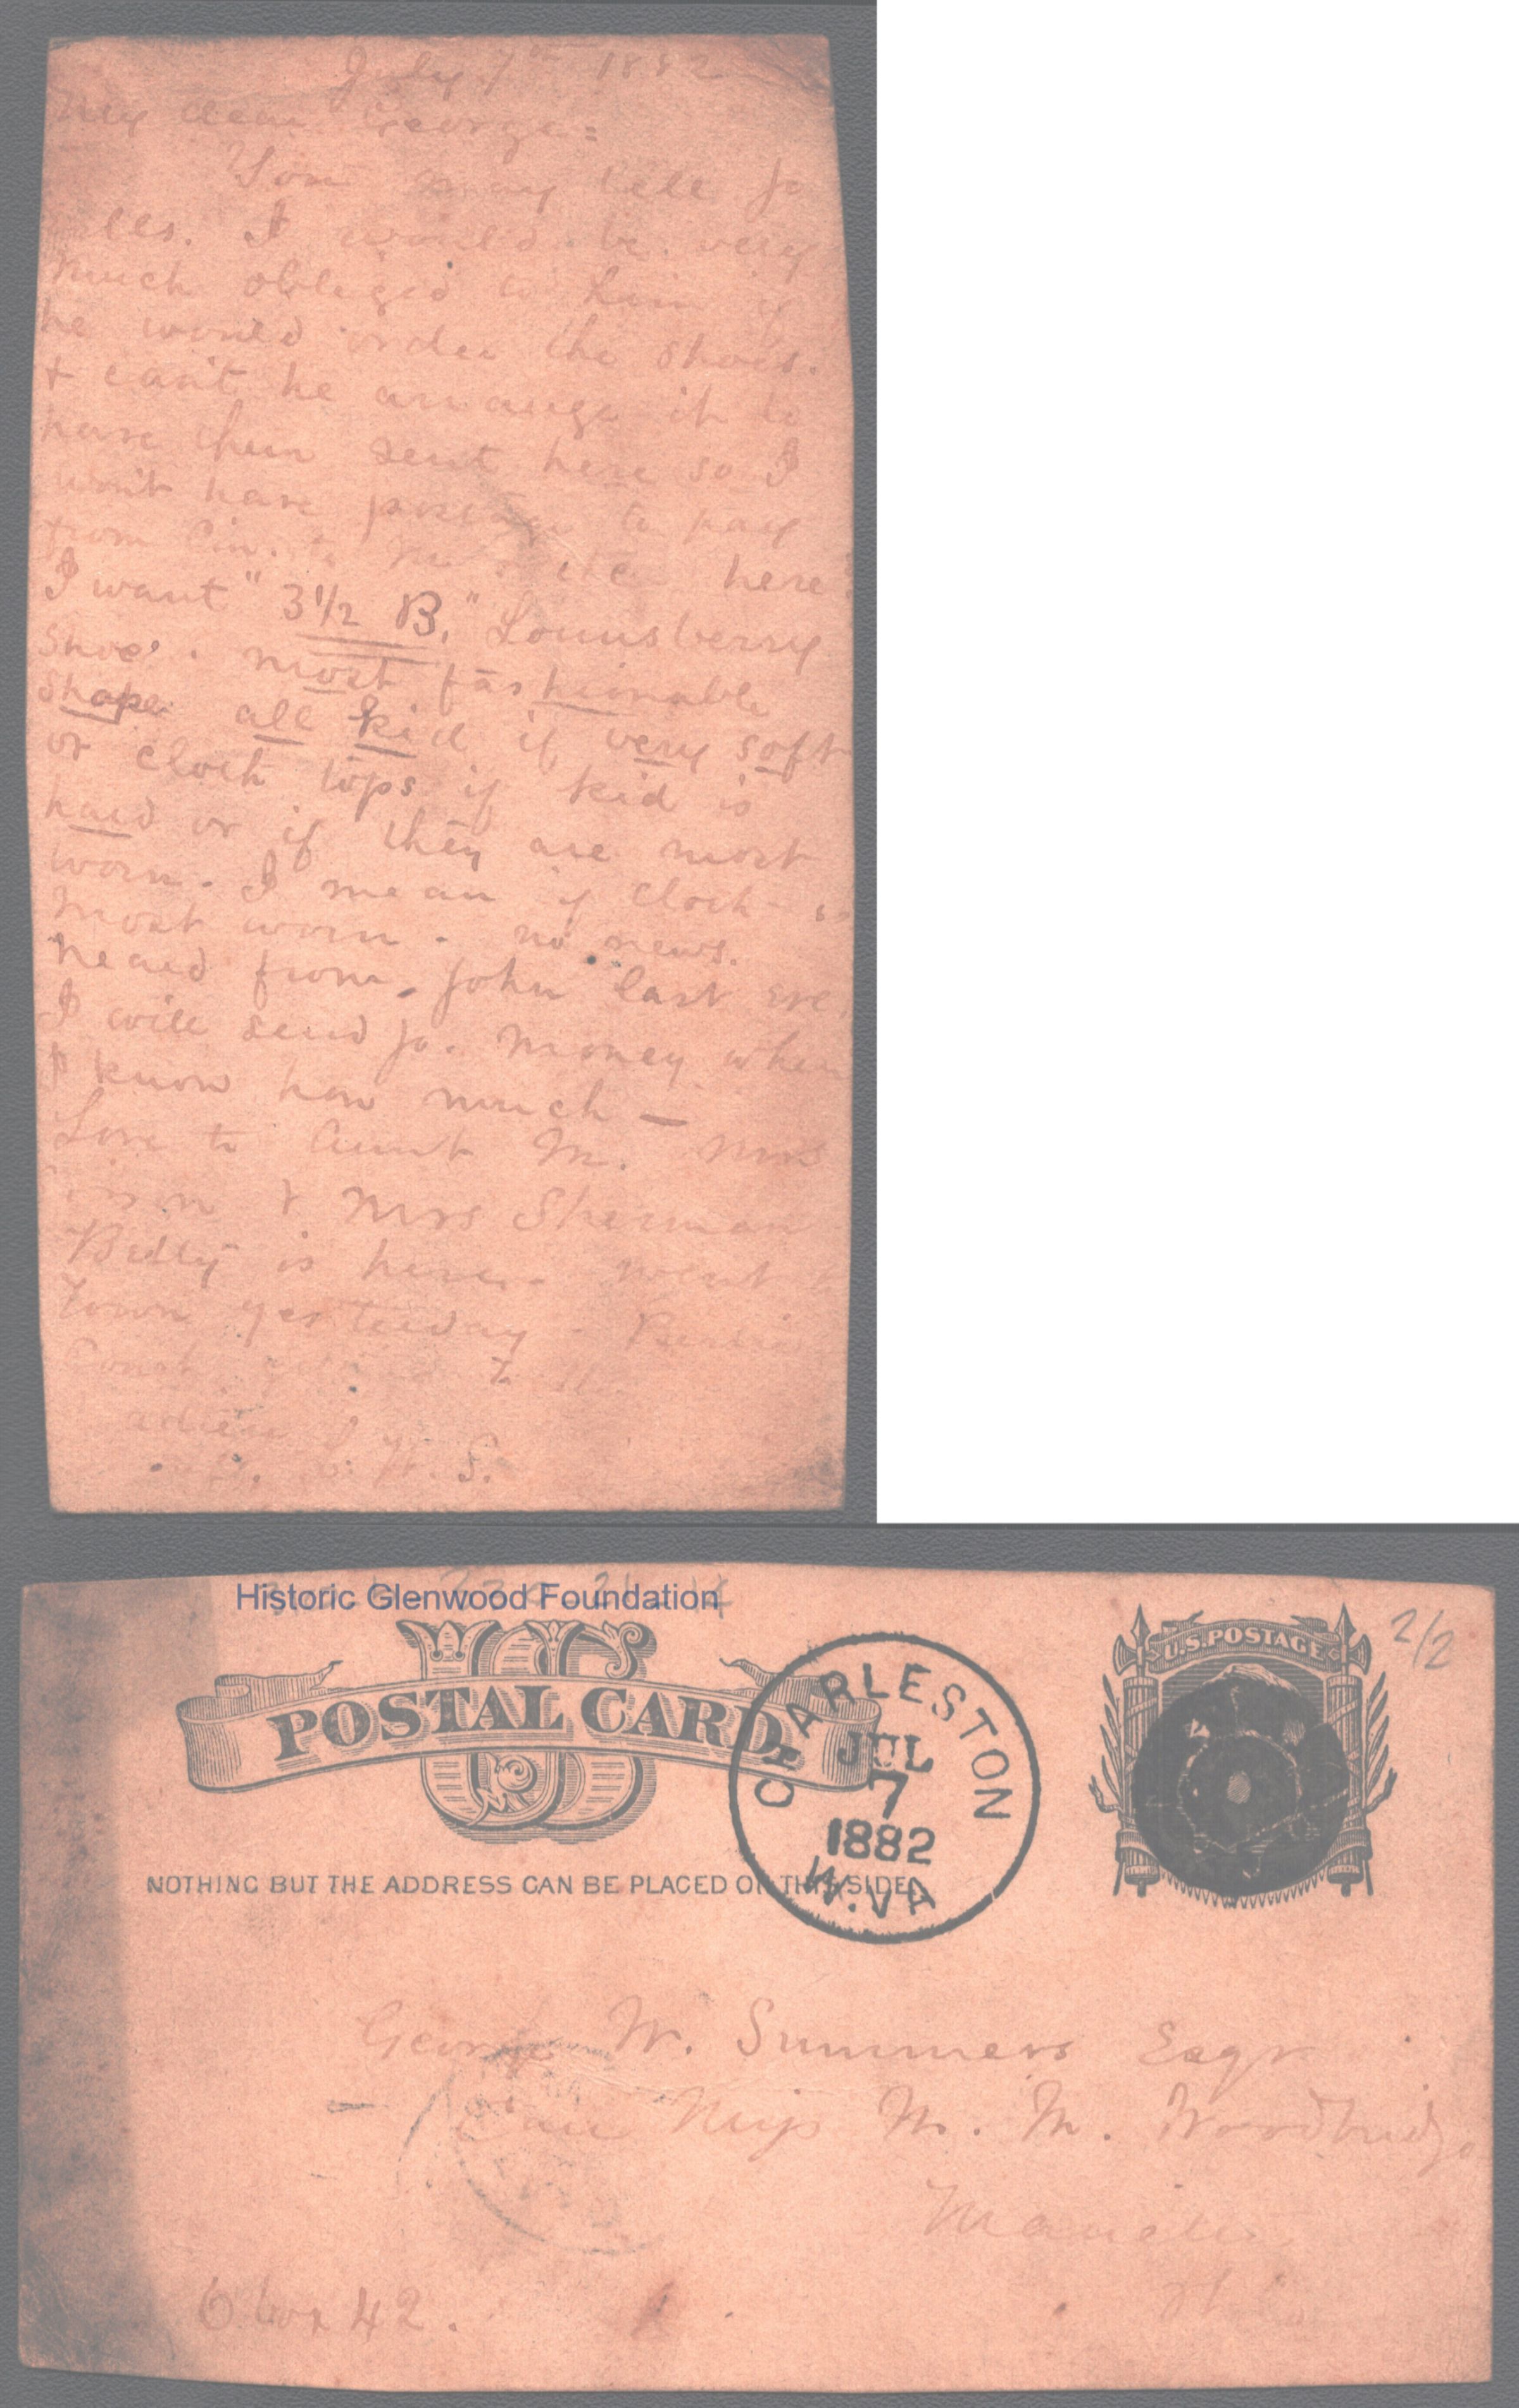 July 7th 1882
My dear George =
You may tell Jo
I would be very
much obliged to him if
he would order the shoes.
+ can't he arrange it to
have them sent here so I
won't have postage to pay
from Cin. to here
I want "3 1/2 B." Lounsberry
shoe. most fashionable
shape all kid if very soft
or cloth tops if kid is
hard or if they are most
worn. I mean if cloth is
most worn. no news.
heard from John last eve.
I will send Jo. money when
I know how much —
Love to Aunt M. Mrs
& Mrs Sherman
Billy is here. went to
Town yesterday -
adieu
S.
Historic Glenwood Foundation
2/2
US
POSTAL CARD
U.S. POSTAGE
CHARLESTON
JUL
7
1882
W. VA
NOTHING BUT THE ADDRESS CAN BE PLACED ON THIS SIDE
George W. Summers Esqr
Care Miss M. M. Woodbridge
Marietta
Ohio
box 42.